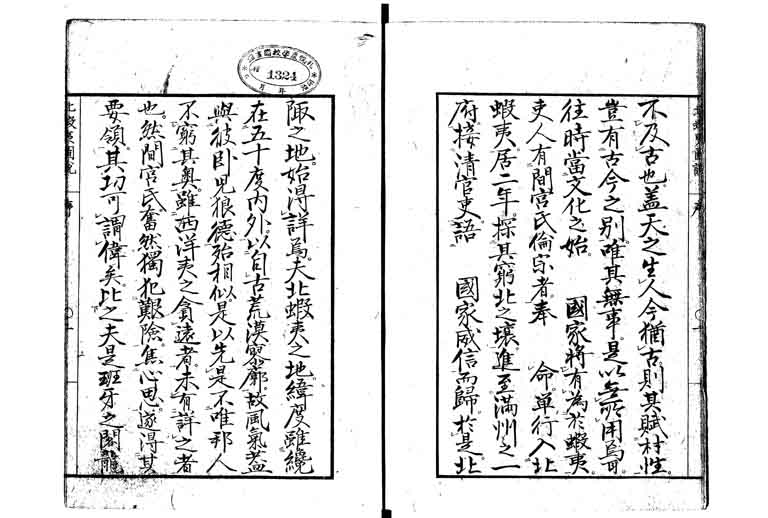 不及古也蓋天之生人今猶古則其賦材性
豈有古今之別唯其無事是以無所用焉耳
往時當文化之始　國家將有為於蝦夷
吏人有間宮氏倫宗者奉　命單行入北
蝦夷居二年探其窮北之壤進至滿州之一
府接清官吏語　國家威信而歸於是北
陬之地始得詳焉夫北蝦夷之地緯度雖纔
在五十度內外以自古荒漠寥廓故風氣蓋
與彼臥兒狼德殆相似是以先是不唯邦人
不窮其奧雖西洋夷之貪遠者未有詳之者
也然間宮氏奮然獨犯艱險焦心思遂得其
要領其功可謂偉矣比之夫是班牙之閣龍
北蝦夷圖說　序
1324